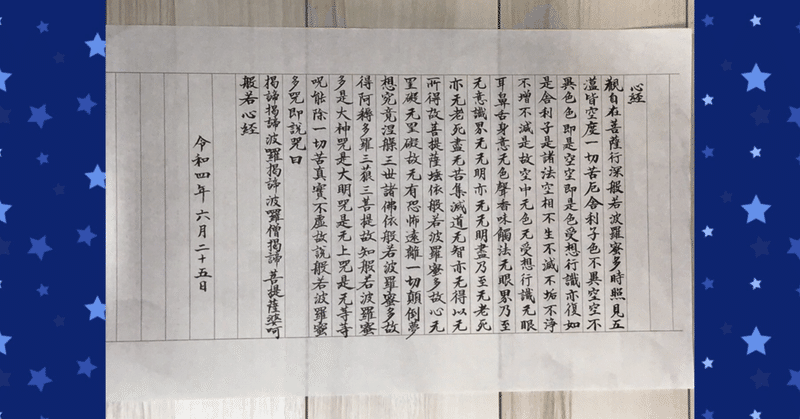 心経
觀自在菩薩行深般若波羅蜜多時照見五
薀皆空度一切苦厄舍利子色不異空空不
異色色即是空空即是色受想行識亦復如
是舍利子是諸法空相不生不滅不垢不淨
不增不減是故空中无色无受想行識无眼
耳鼻舌身意无色聲香味觸法无眼界乃至
无意識界无无明亦无无明盡乃至无老死
亦无老死盡无苦集滅道无智亦无得以无
所得故菩提薩埵依般若波羅蜜多故心无
罣礙无罣礙故无有恐怖遠離一切顛倒夢
想究竟涅槃三世諸佛依般若波羅蜜多故
得阿耨多羅三藐三菩提故知般若波羅蜜
多是大神咒是大明咒是无上咒是无等等
呪能除一切苦真實不虛故說般若波羅蜜
多咒即說咒曰
揭諦揭諦波羅揭諦波羅僧揭諦菩提薩婆呵
般若心経
令和四年六月二十五日